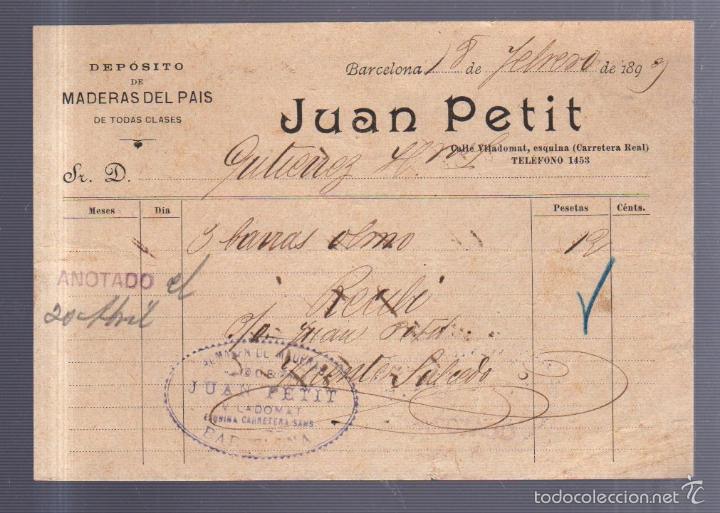 DEPÓSITO
DE
MADERAS DEL PAIS
DE TODAS CLASES
Barcelona 18 de Febrero de 1899
Juan Petit
Calle Viladomat, esquina (Carretera Real)
TELÉFONO 1453
Sr. D. Gutierrez
Meses Dia Pesetas Cénts.
3 barras olmo 12
ANOTADO el
20 Abril
Recibi
P/o Juan Petit
Vicente Salcedo
JUAN PETIT
VILADOMAT
ESQUINA CARRETERA SANS
BARCELONA
todocoleccion.net